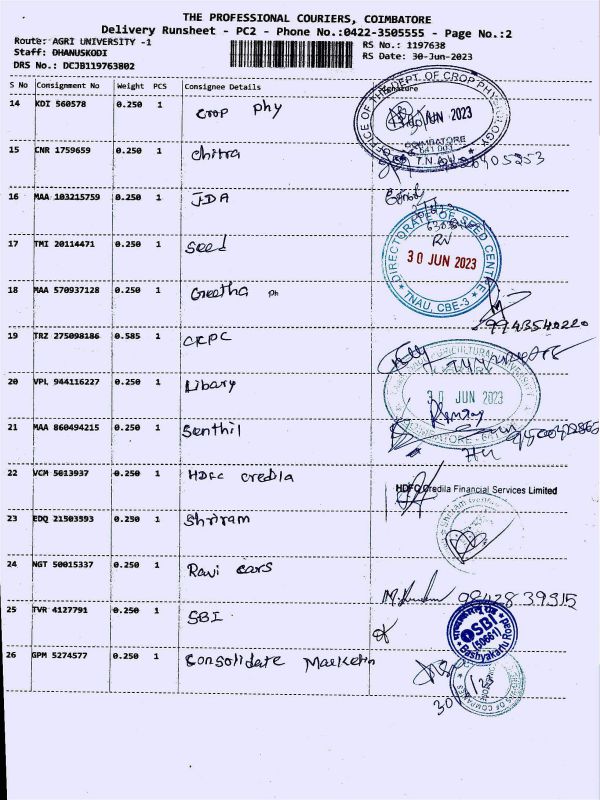 THE PROFESSIONAL COURIERS, COIMBATORE
Delivery Runsheet - PC2 - Phone No.:0422-3505555 - Page No.:2
Route: AGRI UNIVERSITY -1
RS No.: 1197638
Staff: DHANUSKODI
RS Date: 30-Jun-2023
DRS No.: DCJB119763802
S No Consignment No Weight PCS Consignee Details Signature
14 KDI 560578 0.250 1 Crop phy
OFFICE OF THE DEPT. OF CROP PHYSIOLOGY
JUN 2023
COIMBATORE
641 003
T.N.A.U.
15 CNR 1759659 0.250 1 Chitra
16 MAA 103215759 0.250 1 JDA
17 TMI 20114471 0.250 1 Seed
DIRECTORATE OF SEED CENTRE
30 JUN 2023
TNAU, CBE-3
18 MAA 570937128 0.250 1 Geetha Ph
9943540220
19 TRZ 275098186 0.585 1 CRPC
20 VPL 944116227 0.250 1 Libary
30 JUN 2023
21 MAA 860494215 0.250 1 Senthil
22 VCM 5013937 0.250 1 HDFC credila
HDFC Credila Financial Services Limited
23 EDQ 21503593 0.250 1 Shriram
24 NGT 50015337 0.250 1 Ravi cars
25 TVR 4127791 0.250 1 SBI
SBI
(50661)
Bashyakarlu Road
26 GPM 5274577 0.250 1 Consolidate Marketin